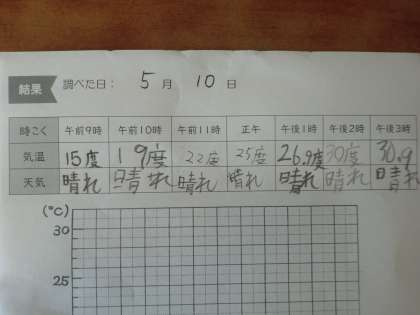 結果 調べた日： 5 月 10 日
時こく 午前9時 午前10時 午前11時 正午 午後1時 午後2時 午後3時
気温 15度 19度 22度 25度 26.9度 30度 30.9
天気 晴れ 晴れ 晴れ 晴れ 晴れ 晴れ 晴れ
(℃)
30
25